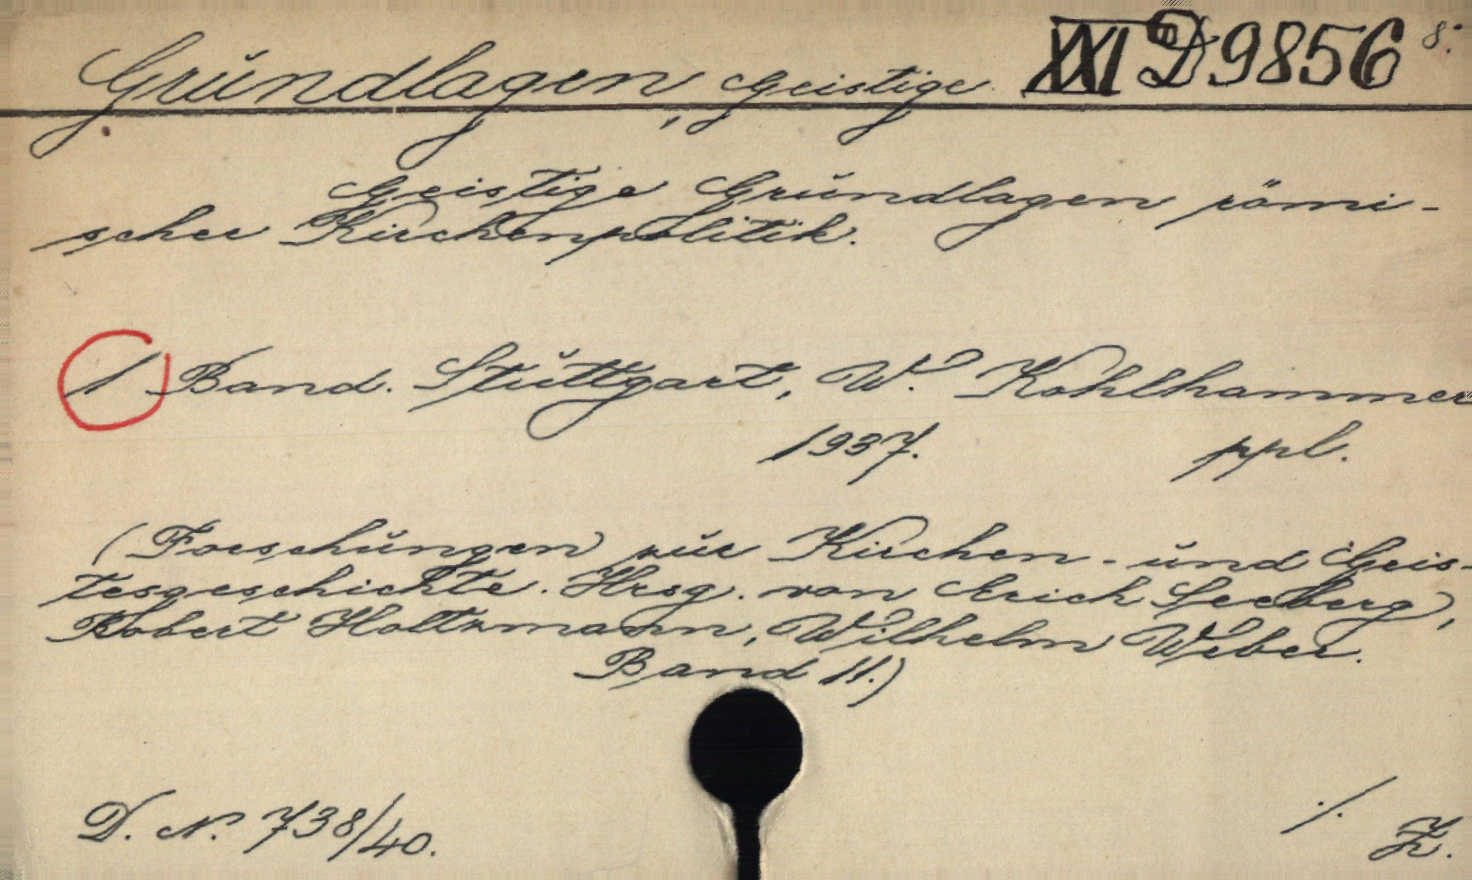 Grundlagen, Geistige XXI D 9856 8:
Geistige Grundlagen römi-
scher Kirchenpolitik.
1 Band. Stuttgart, W. Kohlhammer
1937. ppl.
(Forschungen zur Kirchen- und Geis-
tesgeschichte. Hrsg. von Erich Seeberg,
Robert Holtzmann, Wilhelm Weber.
Band 11.)
D. N. 738/40. ./.
Z.